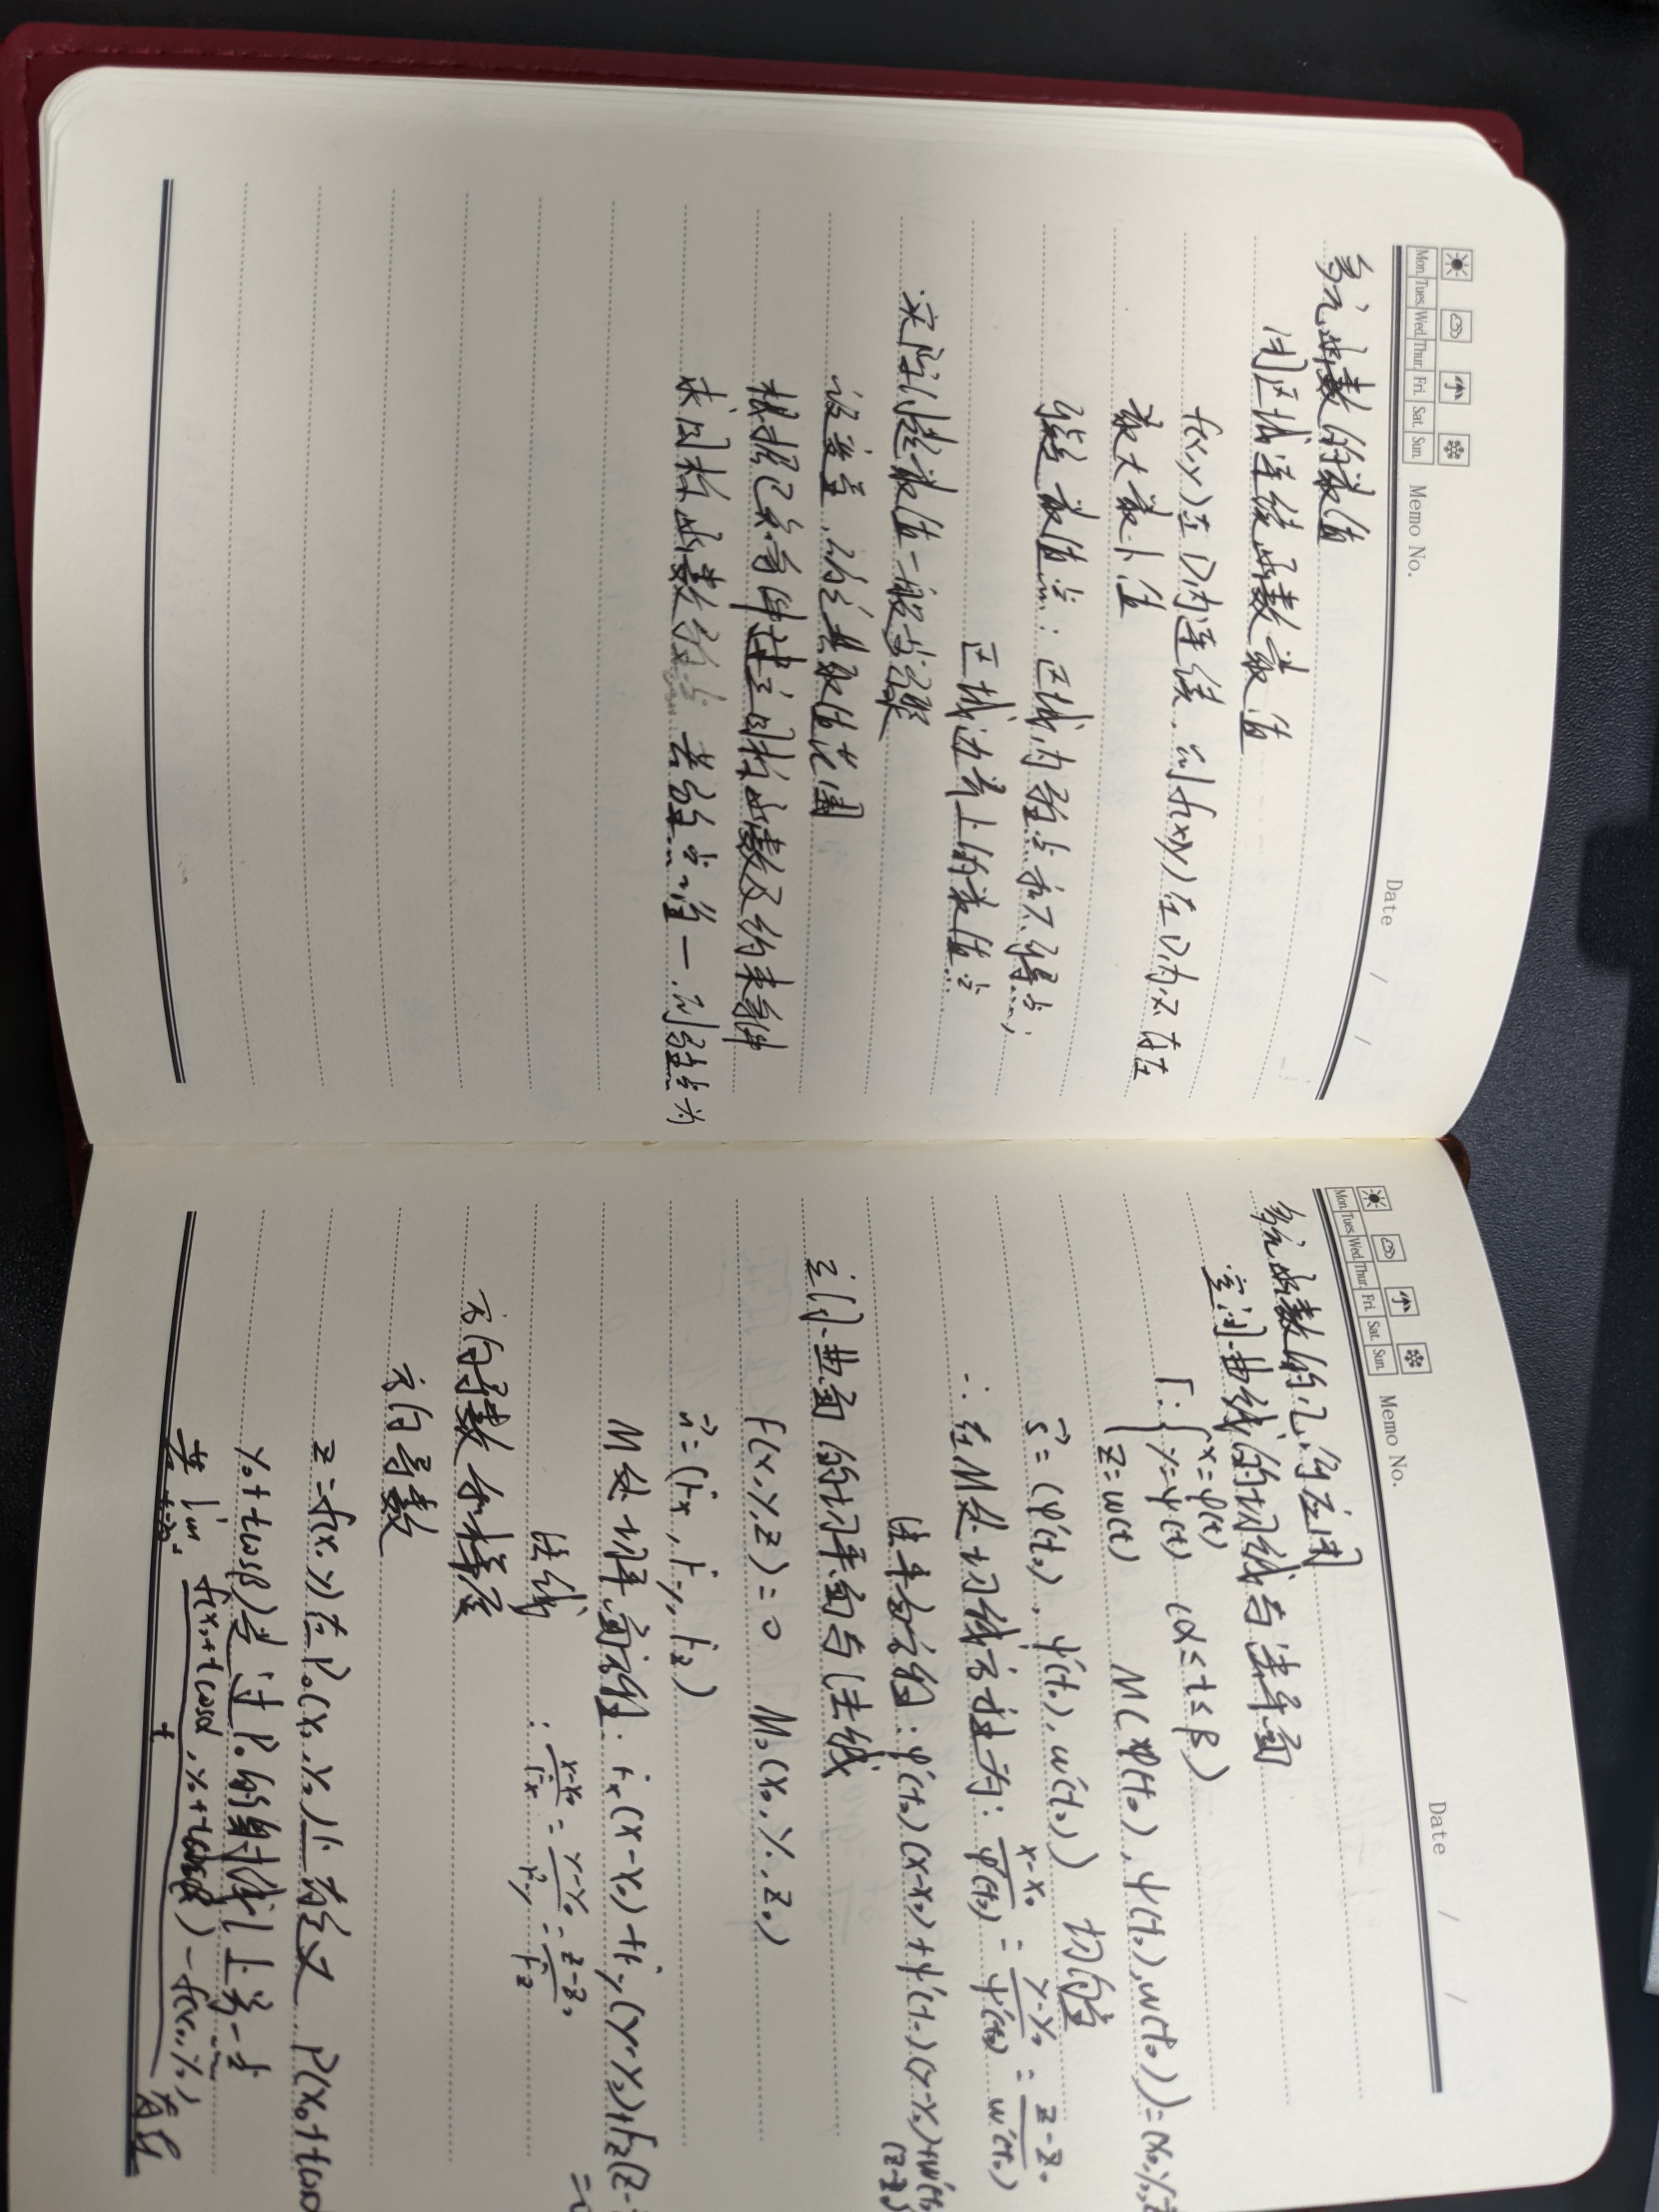 Mon. Tues. Wed. Thur. Fri. Sat. Sun.
Memo No.
Date / /
多元函数的最值
闭区域连续函数最值
f(x,y)在D内连续,则f(x,y)在D内必存在
最大最小值
可疑最值点:区域内驻点和不可导点;
区域边界上的最值点
实际问题最值一般步骤
设变量,确定其取值范围
根据已知条件建立目标函数及约束条件
求目标函数驻点 若驻点唯一,则驻点为
Mon. Tues. Wed. Thur. Fri. Sat. Sun.
Memo No.
Date / /
多元函数的几何应用
空间曲线的切线与法平面
Γ: { x=φ(t)
y=ψ(t) (α≤t≤β)
z=w(t) M(φ(t₀), ψ(t₀), w(t₀))=(x₀,y₀,z
s⃗=(φ'(t₀), ψ'(t₀), w'(t₀)) 切向量
∴在M处切线方程为: (x-x₀)/φ'(t₀) = (y-y₀)/ψ'(t₀) = (z-z₀)/w'(t₀)
法平面方程: φ'(t₀)(x-x₀)+ψ'(t₀)(y-y₀)+w'(t₀)
(z-z₀)
空间曲面的切平面与法线
F(x,y,z)=0 M₀(x₀,y₀,z₀)
n⃗=(Fx, Fy, Fz)
M处切平面方程: Fx(x-x₀)+Fy(y-y₀)+Fz(z-
=0
法线 : (x-x₀)/Fx = (y-y₀)/Fy = (z-z₀)/Fz
方向导数和梯度
方向导数
z=f(x,y)在P₀(x₀,y₀)上有定义 P(x₀+tcosα
y₀+tcosβ)是过P₀的射线l上另一点
若 lim f(x₀+tcosα, y₀+tcosβ)-f(x₀,y₀)/t 存在